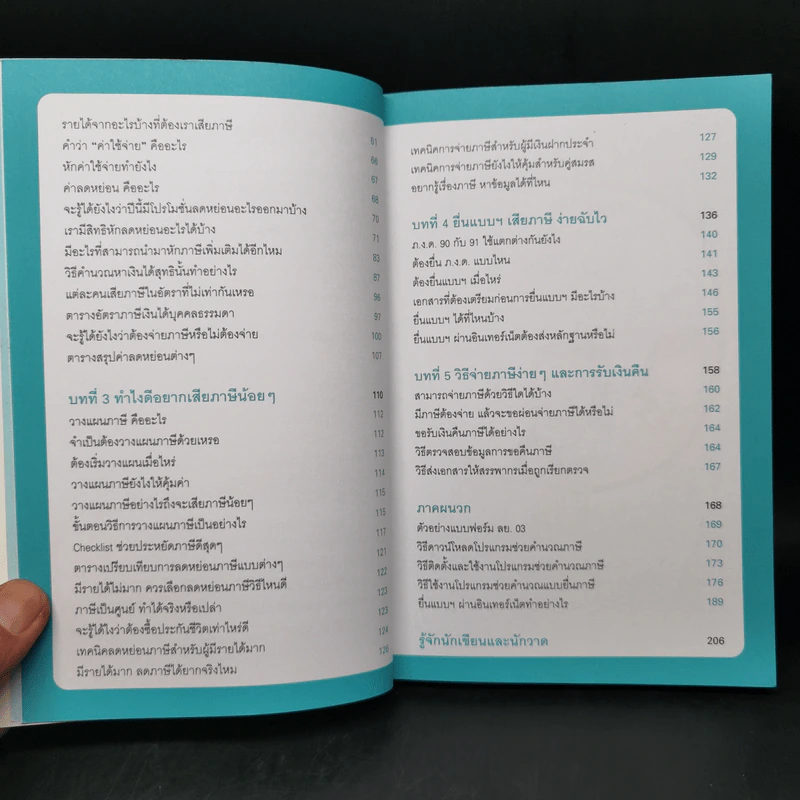 รายได้จากอะไรบ้างที่ต้องเราเสียภาษี 61
คำว่า "ค่าใช้จ่าย" คืออะไร 66
หักค่าใช้จ่ายทำยังไง 67
ค่าลดหย่อน คืออะไร 68
จะรู้ได้ยังไงว่าปีนี้มีโปรโมชั่นลดหย่อนอะไรออกมาบ้าง 70
เรามีสิทธิหักลดหย่อนอะไรได้บ้าง 71
มีอะไรที่สามารถนำมาหักภาษีเพิ่มเติมได้อีกไหม 83
วิธีคำนวณหาเงินได้สุทธินั้นทำอย่างไร 87
แต่ละคนเสียภาษีในอัตราที่ไม่เท่ากันเหรอ 96
ตารางอัตราภาษีเงินได้บุคคลธรรมดา 97
จะรู้ได้ยังไงว่าต้องจ่ายภาษีหรือไม่ต้องจ่าย 100
ตารางสรุปค่าลดหย่อนต่างๆ 107
บทที่ 3 ทำไงดีอยากเสียภาษีน้อยๆ 110
วางแผนภาษี คืออะไร 112
จำเป็นต้องวางแผนภาษีด้วยเหรอ 112
ต้องเริ่มวางแผนเมื่อไหร่ 113
วางแผนภาษียังไงให้คุ้มค่า 114
วางแผนภาษีอย่างไรถึงจะเสียภาษีน้อยๆ 115
ขั้นตอนวิธีการวางแผนภาษีเป็นอย่างไร 115
Checklist ช่วยประหยัดภาษีดีสุดๆ 117
ตารางเปรียบเทียบการลดหย่อนภาษีแบบต่างๆ 121
มีรายได้ไม่มาก ควรเลือกลดหย่อนภาษีวิธีไหนดี 122
ภาษีเป็นศูนย์ ทำได้จริงหรือเปล่า 123
จะรู้ได้ไงว่าต้องซื้อประกันชีวิตเท่าไหร่ดี 123
เทคนิคลดหย่อนภาษีสำหรับผู้มีรายได้มาก 124
มีรายได้มาก ลดภาษีได้ยากจริงไหม 126
เทคนิคการจ่ายภาษีสำหรับผู้มีเงินฝากประจำ 127
เทคนิคการจ่ายภาษียังไงให้คุ้มสำหรับคู่สมรส 129
อยากรู้เรื่องภาษี หาข้อมูลได้ที่ไหน 132
บทที่ 4 ยื่นแบบฯ เสียภาษี ง่ายฉับไว 136
ภ.ง.ด. 90 กับ 91 ใช้แตกต่างกันยังไง 140
ต้องยื่น ภ.ง.ด. แบบไหน 141
ต้องยื่นแบบฯ เมื่อไหร่ 143
เอกสารที่ต้องเตรียมก่อนการยื่นแบบฯ มีอะไรบ้าง 146
ยื่นแบบฯ ได้ที่ไหนบ้าง 155
ยื่นแบบฯ ผ่านอินเทอร์เน็ตต้องส่งหลักฐานหรือไม่ 156
บทที่ 5 วิธีจ่ายภาษีง่ายๆ และการรับเงินคืน 158
สามารถจ่ายภาษีด้วยวิธีใดได้บ้าง 160
มีภาษีต้องจ่าย แล้วจะขอผ่อนจ่ายภาษีได้หรือไม่ 162
ขอรับเงินคืนภาษีได้อย่างไร 164
วิธีตรวจสอบข้อมูลการขอคืนภาษี 164
วิธีส่งเอกสารให้สรรพากรเมื่อถูกเรียกตรวจ 167
ภาคผนวก 168
ตัวอย่างแบบฟอร์ม ลย. 03 169
วิธีดาวน์โหลดโปรแกรมช่วยคำนวณภาษี 170
วิธีติดตั้งและใช้งานโปรแกรมช่วยคำนวณภาษี 173
วิธีใช้งานโปรแกรมช่วยคำนวณแบบยื่นภาษี 176
ยื่นแบบฯ ผ่านอินเทอร์เน็ตทำอย่างไร 189
รู้จักนักเขียนและนักวาด 206